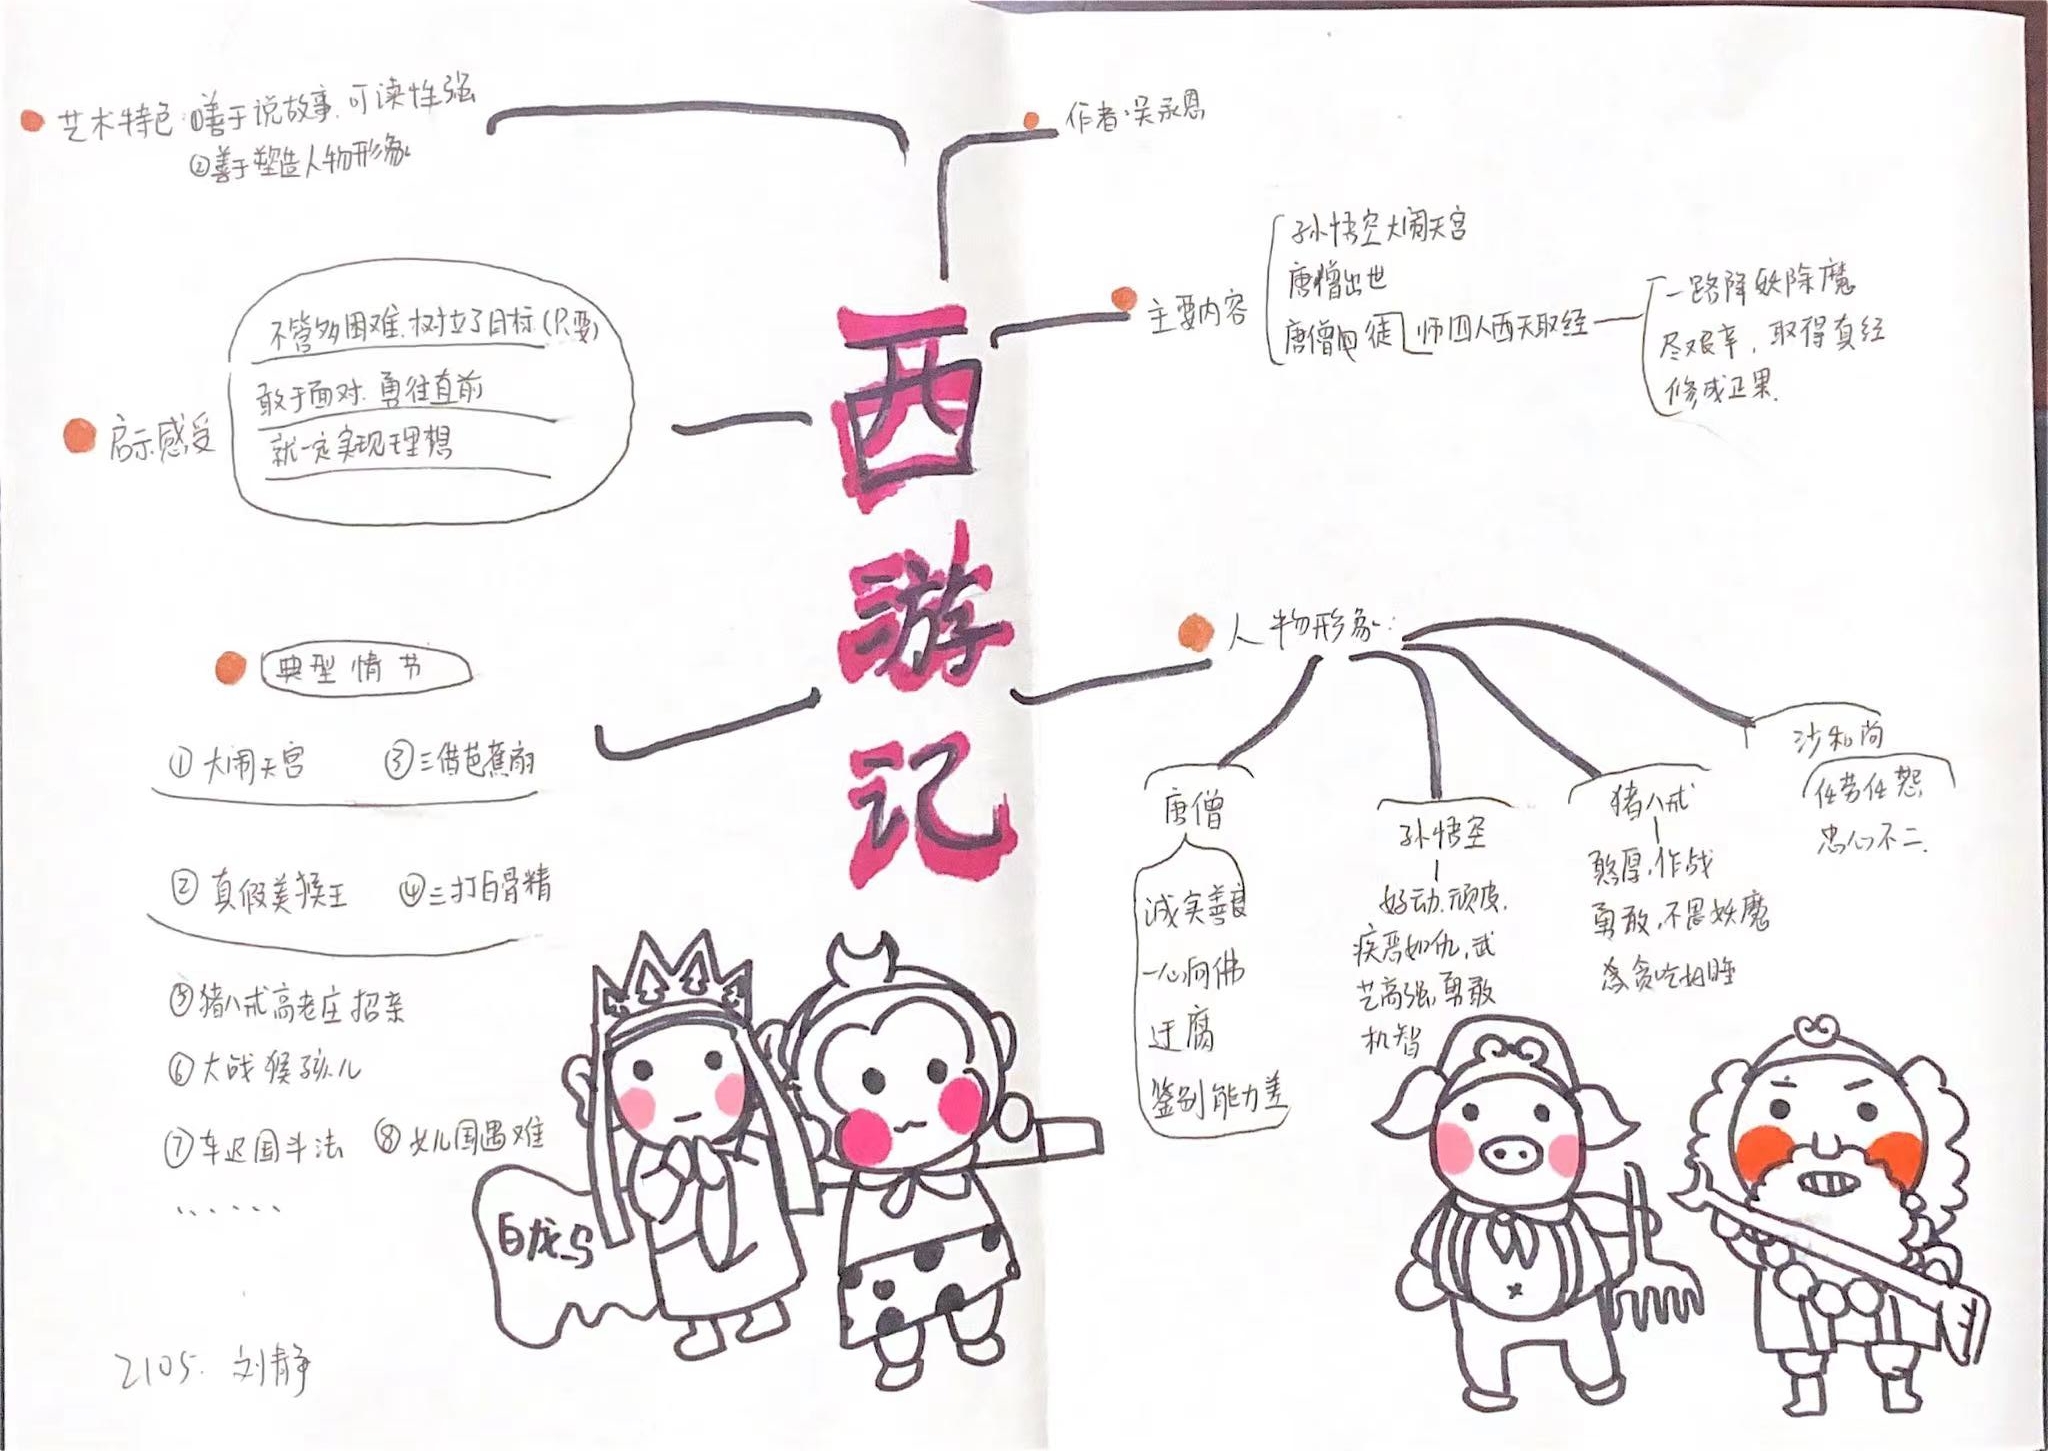 艺术特色:①善于说故事.可读性强
②善于塑造人物形象
启示感受
不管多困难.树立了目标(只要)
敢于面对.勇往直前
就一定实现理想
典型情节
①大闹天宫 ③三借芭蕉扇
②真假美猴王 ④三打白骨精
⑤猪八戒高老庄招亲
⑥大战猴孩儿
⑦车迟国斗法 ⑧女儿国遇难
......
白龙马
2105. 刘静
西
游
记
作者:吴承恩
主要内容
孙悟空大闹天宫
唐僧出世
唐僧 徒 师四人西天取经
一路降妖除魔
尽艰辛,取得真经
修成正果.
人物形象:
唐僧
诚实善良
一心向佛
迂腐
鉴别能力差
孙悟空
好动.顽皮.
疾恶如仇,武
艺高强,勇敢
机智
猪八戒
憨厚,作战
勇敢,不畏妖魔
贪吃
沙和尚
任劳任怨
忠心不二.